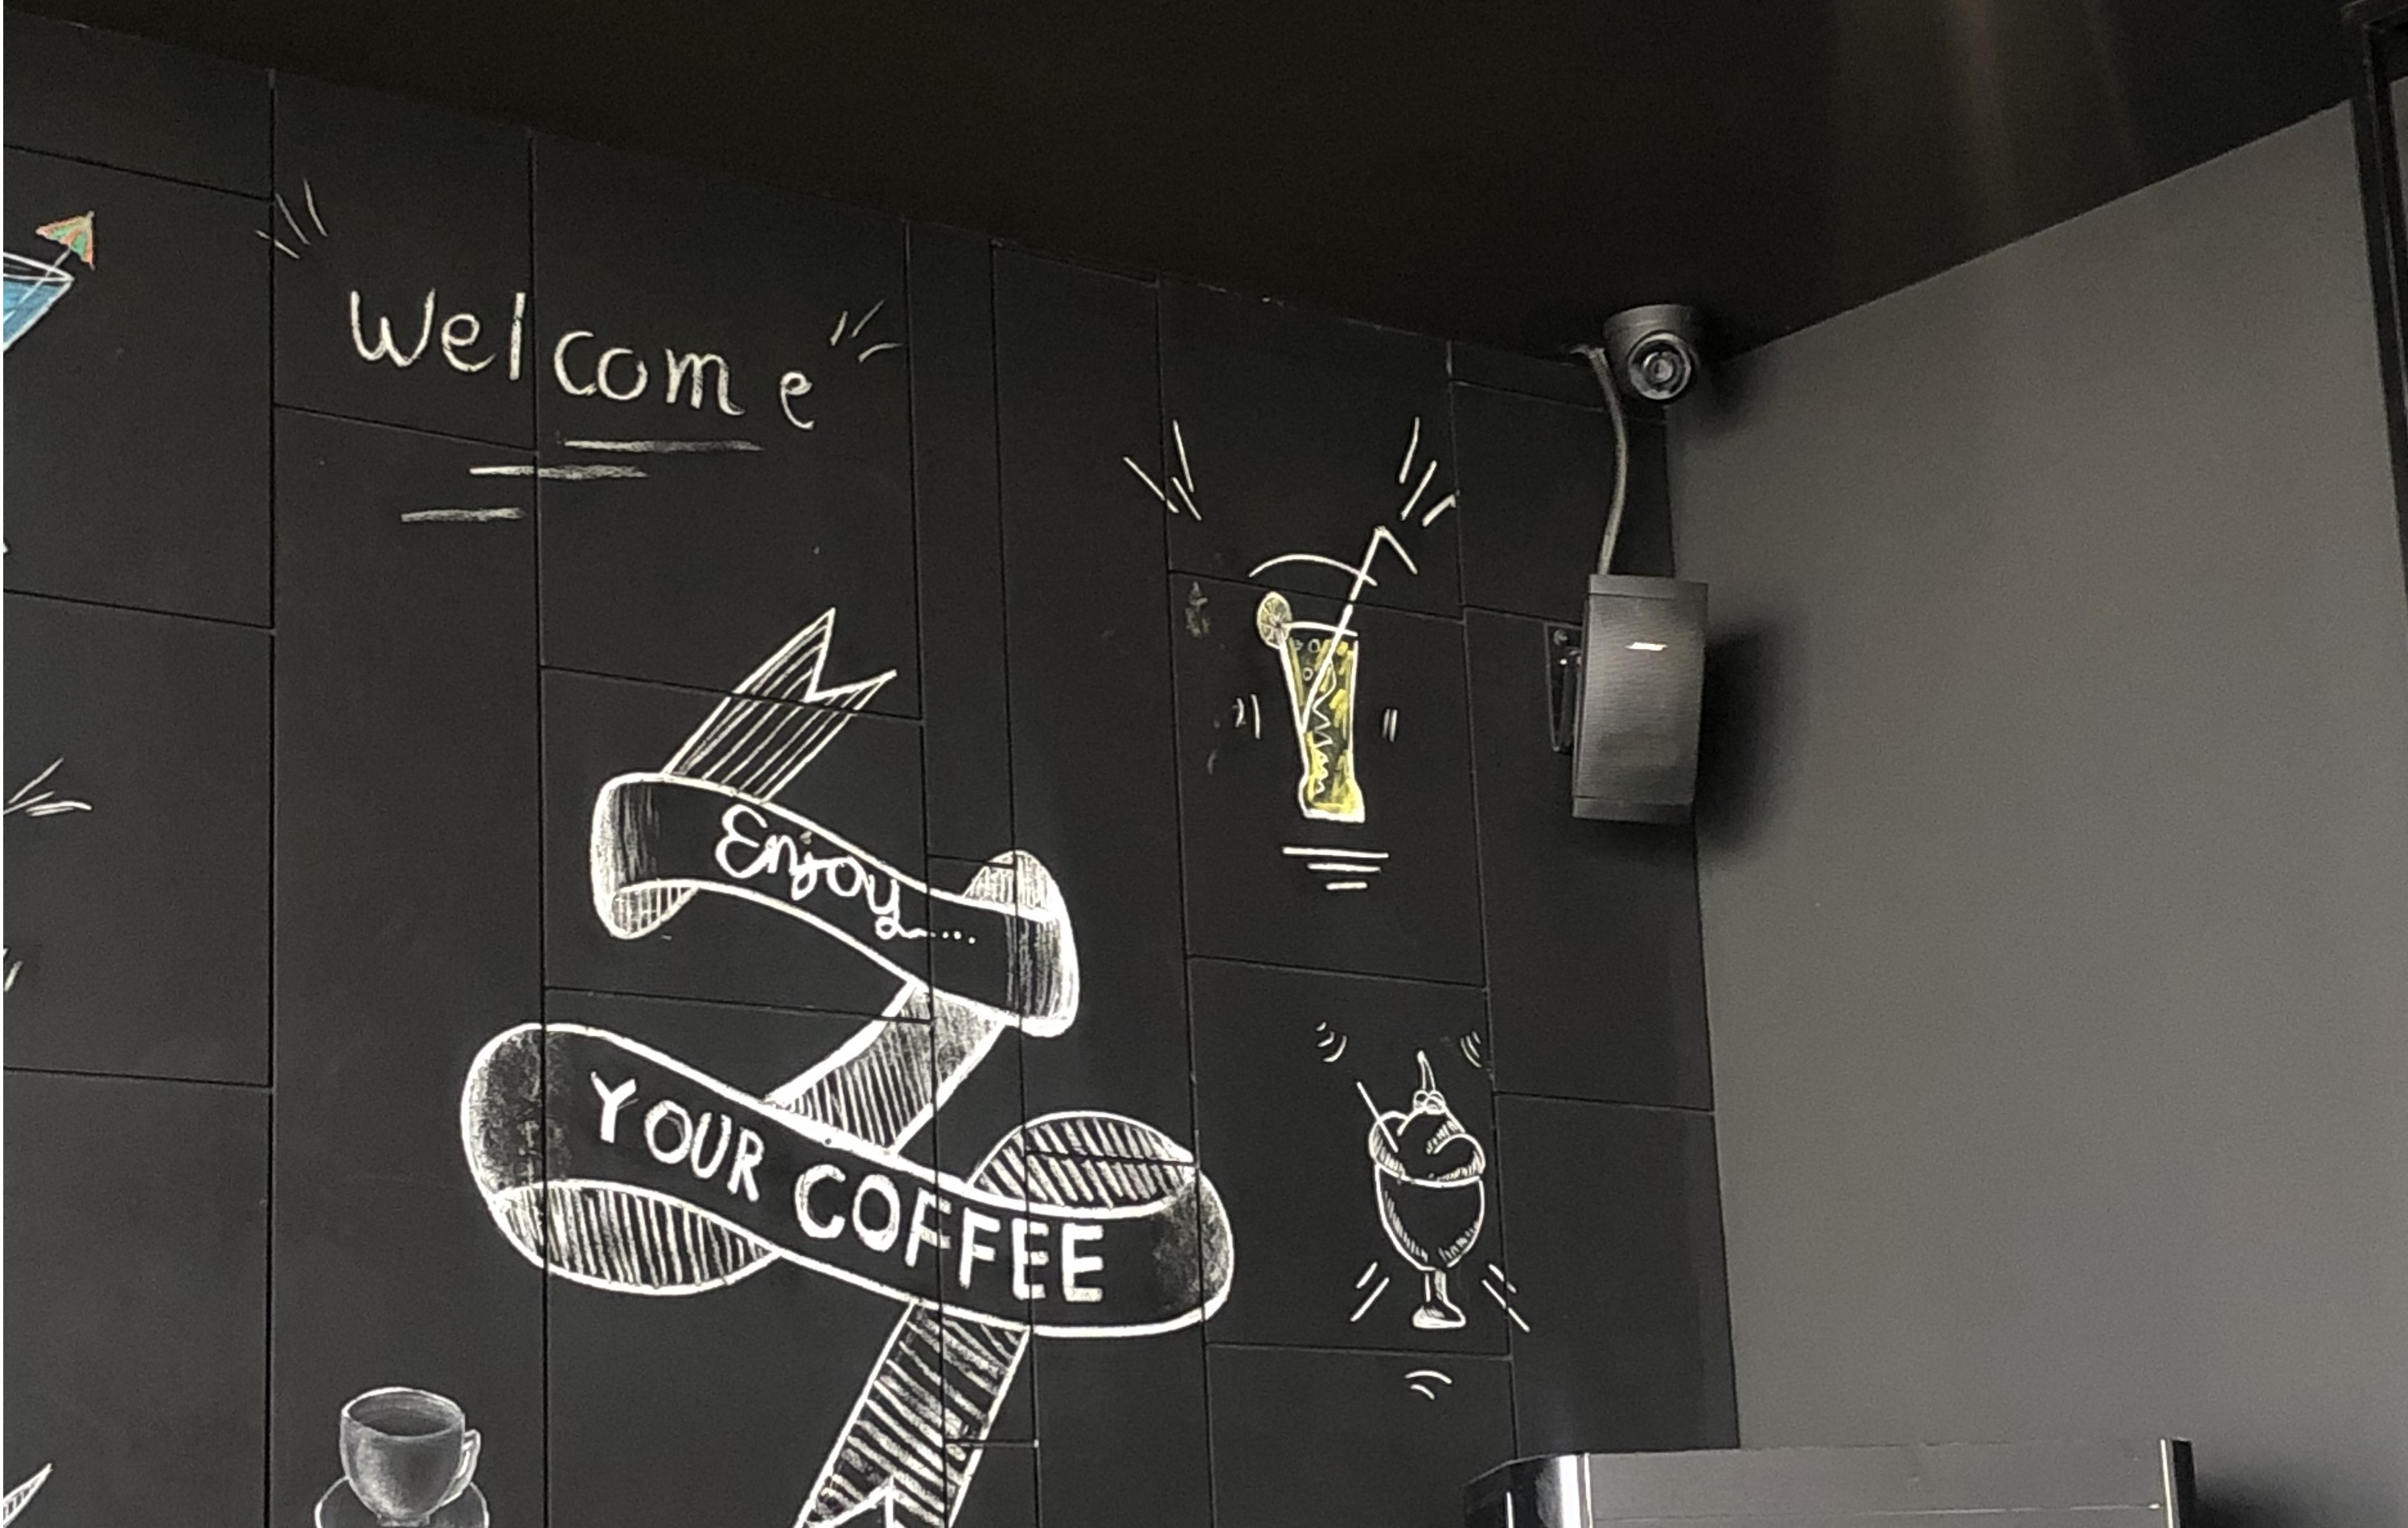 Welcome
Enjoy....
YOUR COFFEE